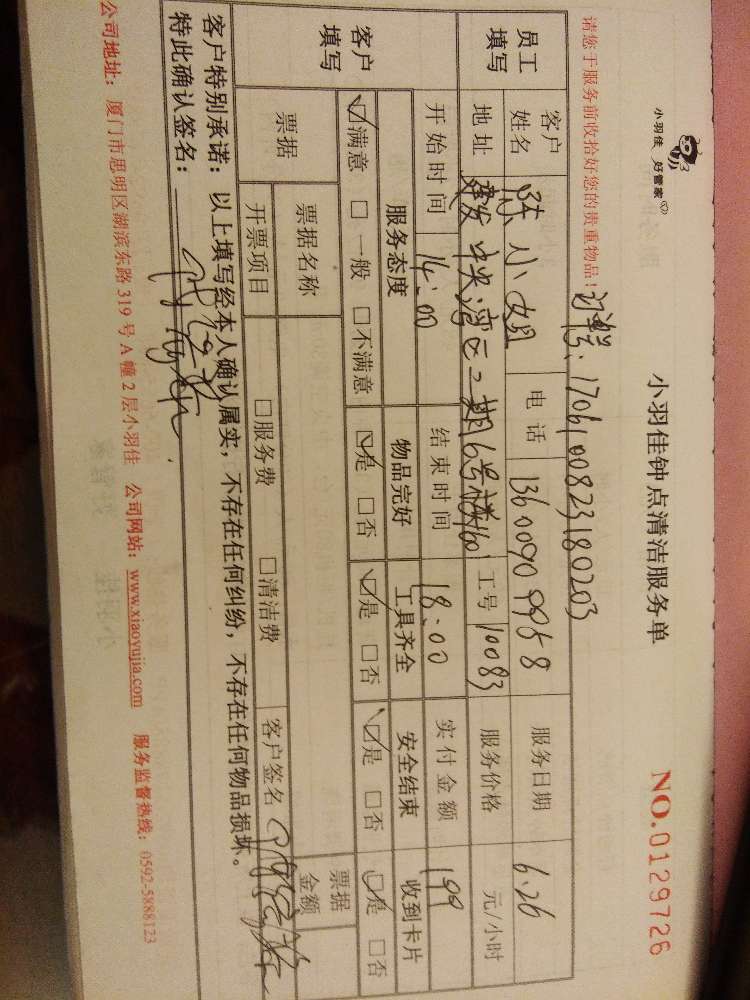 小羽佳 好管家
小羽佳钟点清洁服务单
NO.0129726
请您于服务前收拾好您的贵重物品!
订单号:1706100823180203
员工填写
客户姓名 陈小姐 电话 13600909958 服务日期 6.26
地址 建发中央湾区二期6号楼1601 工号 10083 服务价格 元/小时
开始时间 14:00 结束时间 18:00 实付金额 199
客户填写
服务态度 物品完好 工具齐全 安全结束 收到卡片
☑满意 □一般 □不满意 ☑是 □否 ☑是 □否 ☑是 □否 ☑是 □否
票据 票据名称 票据金额
开票项目 □服务费 □清洁费 客户签名
客户特别承诺:以上填写经本人确认属实,不存在任何纠纷,不存在任何物品损坏。
特此确认签名:
公司地址:厦门市思明区湖滨东路319号A幢2层小羽佳 公司网站:www.xiaoyujia.com 服务监督热线:0592-5888123